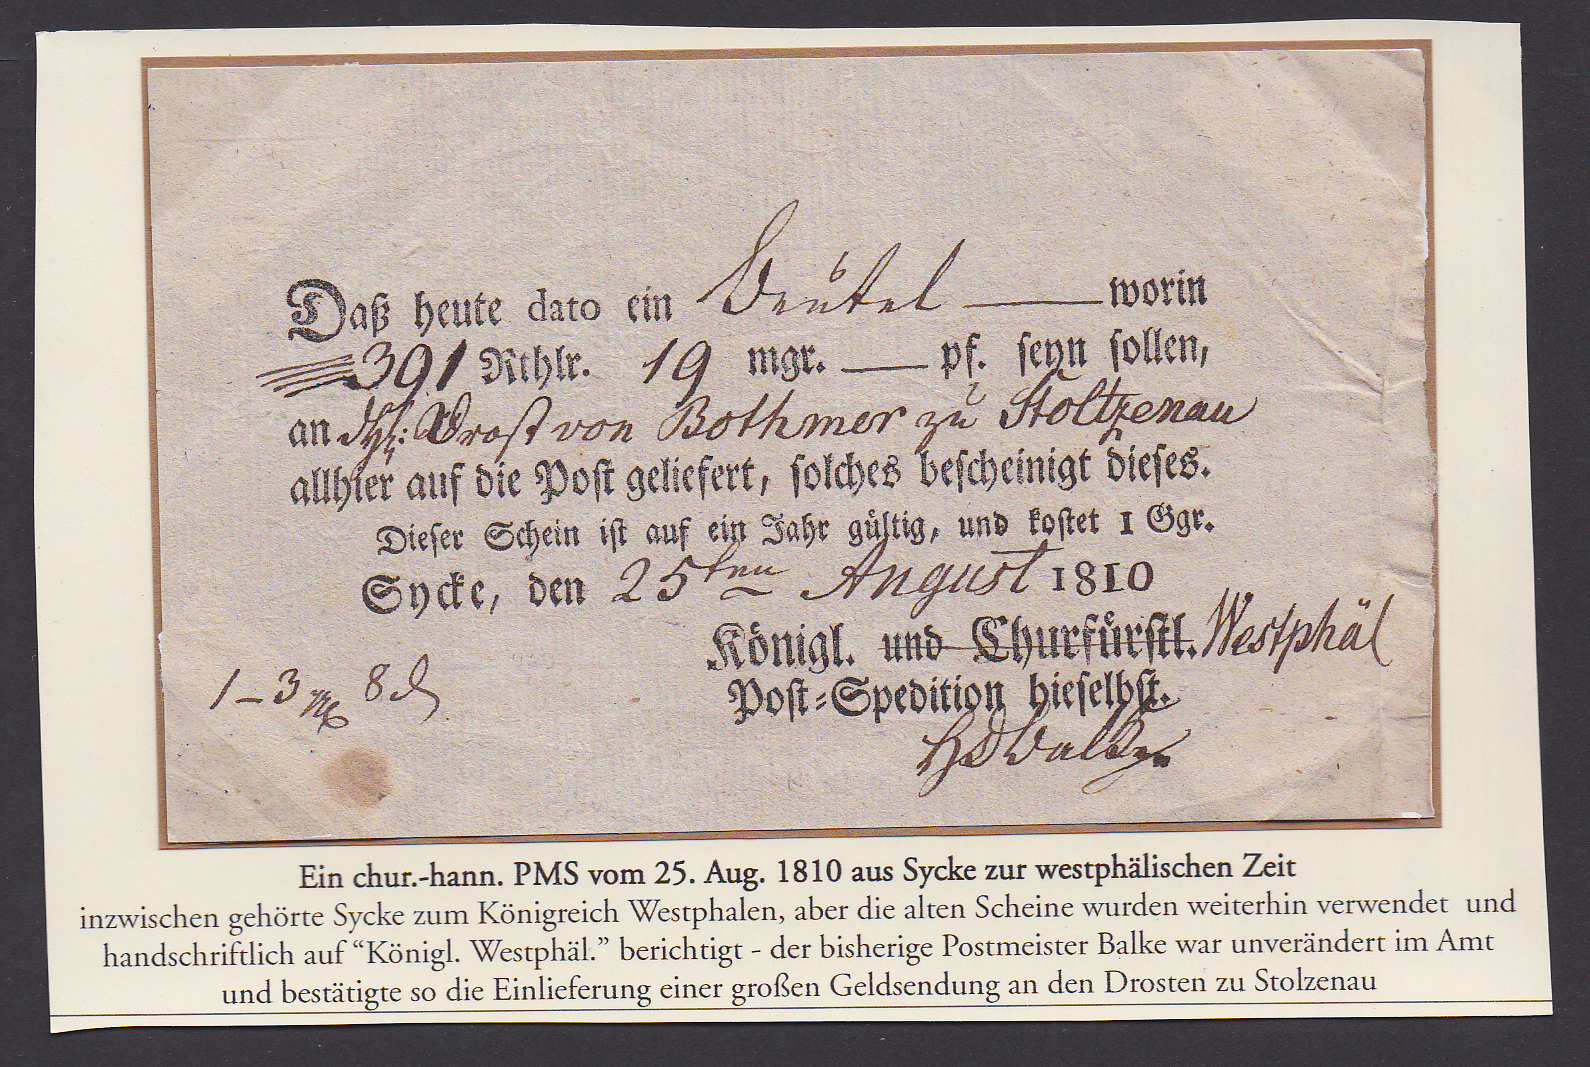 Daß heute dato ein Beutel — worin
391 Rthlr. 19 mgr. — pf. seyn sollen,
an Drost von Bothmer zu Stoltzenau
allhier auf die Post geliefert, solches bescheinigt dieses.
Dieser Schein ist auf ein Jahr gültig, und kostet 1 Ggr.
Sycke, den 25ten August 1810
Königl. und Churfürstl. Westphäl
Post-Spedition hieselbst.
1 – 3 8
Ein chur.-hann. PMS vom 25. Aug. 1810 aus Sycke zur westphälischen Zeit
inzwischen gehörte Sycke zum Königreich Westphalen, aber die alten Scheine wurden weiterhin verwendet und
handschriftlich auf “Königl. Westphäl.” berichtigt - der bisherige Postmeister Balke war unverändert im Amt
und bestätigte so die Einlieferung einer großen Geldsendung an den Drosten zu Stolzenau